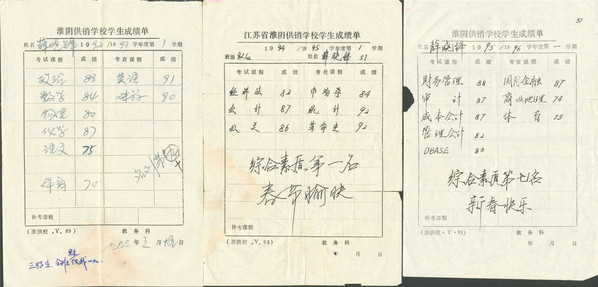 淮阴供销学校学生成绩单
姓名 薛晓锋 1992/1993学年度第1学期
考试课程 成绩 考试课程 成绩
政治 85 英语 91
数学 84 90
物理 80
化学 87
语文 75
体育 70
补考课程
(淮供校.V.89) 教务科
江苏省淮阴供销学校学生成绩单
班级 姓名 薛晓锋 51
1994/1995学年度第1学期
考试课程 成绩 考试课程 成绩
82 84
会计 87 统计 92
86 革命史 92
综合素质第一名
春节愉快
补考课程
(淮供校.V.93) 教务科
年 月 日
51
淮阴供销学校学生成绩单
姓名 薛晓锋 1995/1996学年度第一学期
考试课程 成绩 考试课程 成绩
财务管理 88 国际金融 87
审计 87 商业地理 74
成本会计 87 体育 75
管理会计 82
DBASE 80
综合素质第七名
新春快乐
补考课程
(淮供校.V.91) 教务科
年 月 日